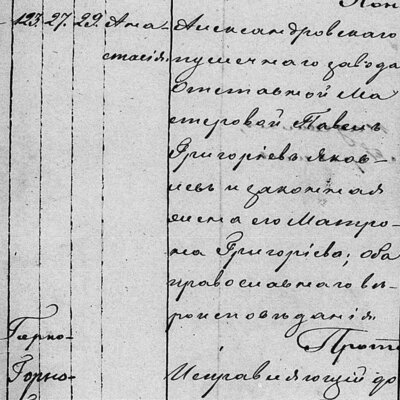 Кон
125. 27. 29. Ана-
стасія.
Александровскаго
пушечнаго завода
Отставной Ма
стеровой Павелъ
Григорьевъ Яков-
левъ и законная
жена его Матро-
на Григорьева; оба
православнаго вѣ-
роисповѣданія
Прот
Горно-
Исправляющій до